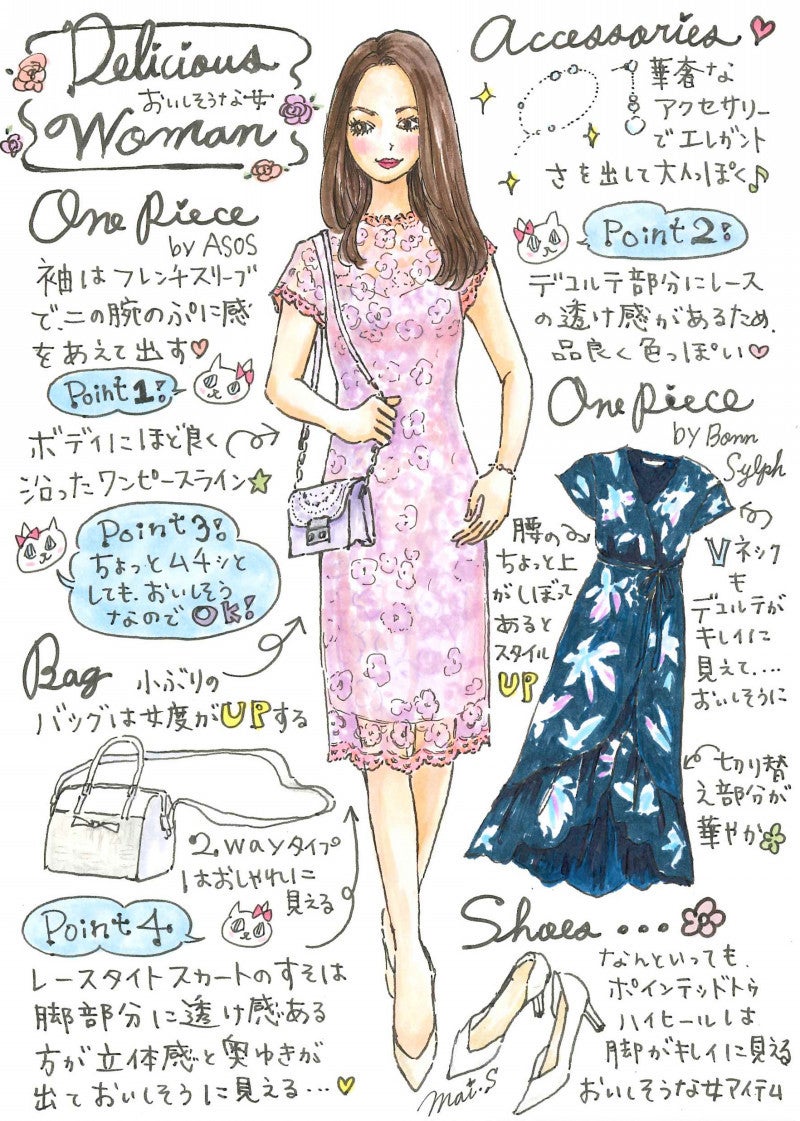 Delicious
おいしそうな女
Woman
One Piece
by ASOS
袖はフレンチスリーブ
で、二の腕のぷに感
をあえて出す♡
Point1!
ボディにほど良く
沿ったワンピースライン☆
Point3!
ちょっとムチッと
しても、おいしそう
なのでOK!
Bag
小ぶりの
バッグは女度がUPする
2wayタイプ
はおしゃれに
見える
Point4
レースタイトスカートのすそは
脚部分に透け感ある
方が立体感と奥ゆきが
出ておいしそうに見える…♡
Accessories♡
華奢な
アクセサリー
でエレガント
さを出して大人っぽく♪
Point2!
デコルテ部分にレース
の透け感があるため、
品良く色っぽい♡
One Piece
by Bonn
Sylph
腰の
ちょっと上
がしぼって
あると
スタイル
UP
Vネック
も
デコルテが
キレイに
見えて....
おいしそうに
切り替
え部分が
華やか
Shoes...
なんといっても、
ポインテッドトゥ
ハイヒールは
脚がキレイに見える
おいしそうな女アイテム
mai.S